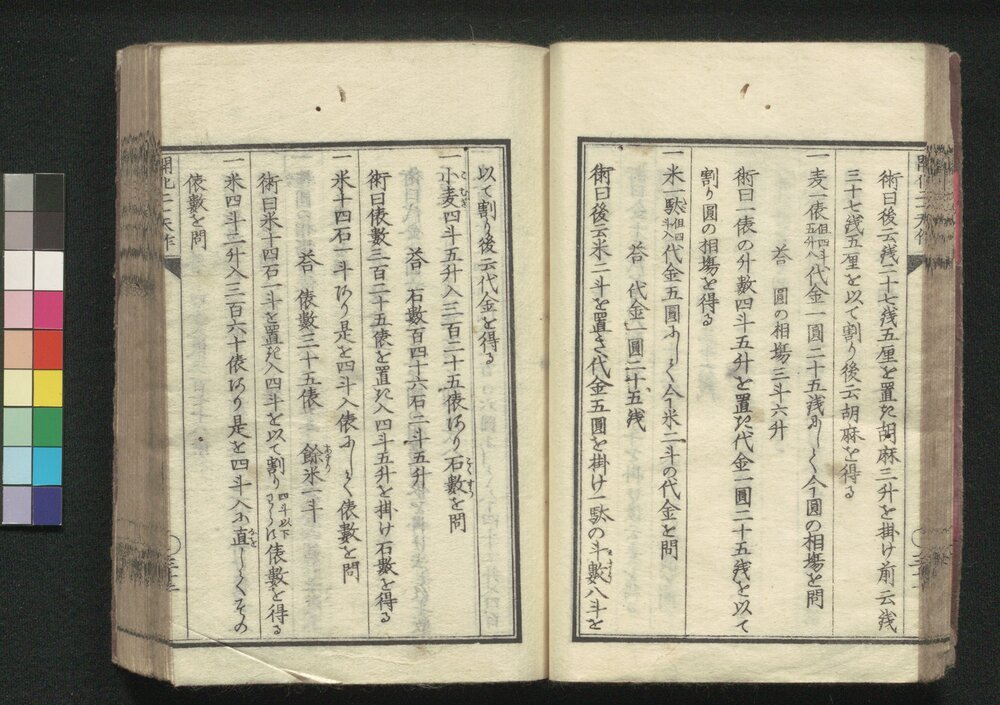 術曰後云銭二十七銭五厘を置き胡麻三升を掛け前云銭
三十七銭五厘を以て割り後云胡麻を得る
一麦一俵但四斗五升入代金一圓二十五銭にして今圓の相塲を問
荅 圓の相塲三斗六升
術曰一俵の升數四斗五升を置き代金一圓二十五銭を以て
割り圓の相塲を得る
一米一駄但四斗入代金五圓にして今米二斗の代金を問
荅 代金一圓二十五銭
術曰後云米二斗を置き代金五圓を掛け一駄の斗數八斗を
以て割り後云代金を得る
一小麦四斗五升入三百二十五俵あり石數を問
荅 石數百四十六石二斗五升
術曰俵數三百二十五俵を置き入四斗五升を掛け石數を得る
一米十四石一斗あり是を四斗入俵にして俵數を問
荅 俵數三十五俵 餘米一斗
術曰米十四石一斗を置き入四斗を以て割り四斗以下俵數を得る
一米四斗二升入三百六十俵あり是を四斗入に直してその
俵數を問